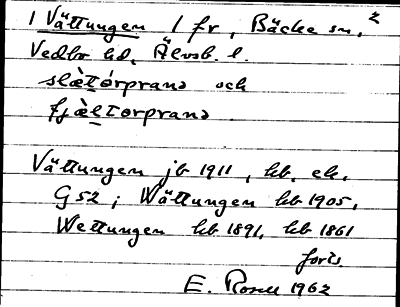 1 Vättungen / fr, Bäcke sn, 2
Vedbo hd, Älvsb. l.
slètórprana och
fjæltorprana
Vättungen jb 1911, hb, ek,
G 52; Wättungen hb 1905,
Wettungen hb 1891, hb 1861
forts.
E. Rosell 1962